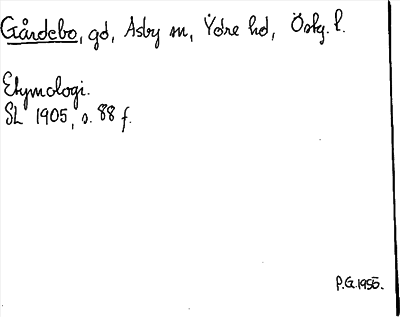 Gårdebo, gd, Asby sn, Ydre hd, Östg. l.
Etymologi.
SL 1905, s. 88 f.
P.G. 1955.